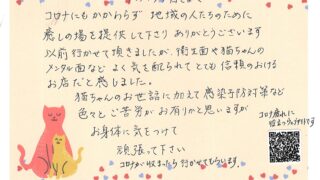 コロナにもかかわらず 地域の人たちのために
癒しの場を提供して下り ありがとうございます
以前行かせて頂きましたが、衛生面や猫ちゃんの
メンタル面など よく気を配られてとても信頼のおける
お店だと感じました。
猫ちゃんのお世話に加えて感染予防対策など
色々と ご苦労が お有りかと思いますが
お身体に気をつけて
頑張って下さい
コロナが収まったら 行かせてもらいます。
コロナ疲れに